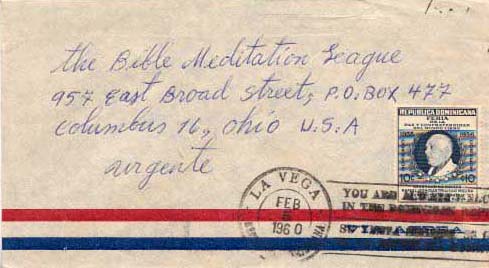 the Bible Meditation League
957 East Broad Street, P.O. BOX 477
Columbus 16, Ohio U.S.A
urgente
REPUBLICA DOMINICANA
FERIA
DE LA
PAZ Y CONFRATERNIDAD
DEL MUNDO LIBRE
1955 1956
10 10
LA VEGA
FEB
1960
YOU ARE
IN THE